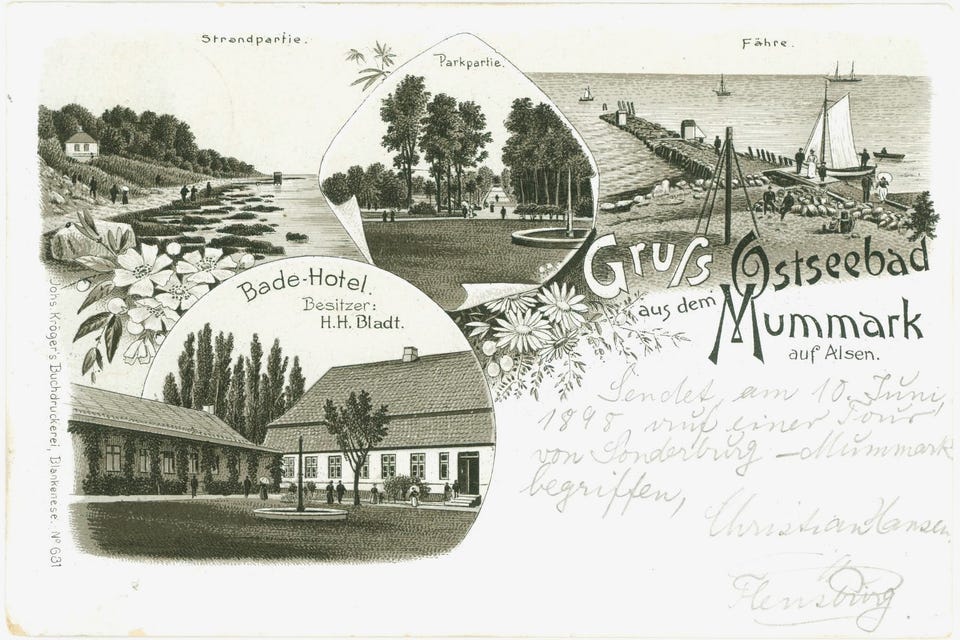 Strandpartie.
Parkpartie.
Fähre.
Gruſs
aus dem
Ostseebad
Mummark
auf Alsen.
Bade-Hotel.
Besitzer:
H.H. Bladt.
Johs. Kröger's Buchdruckerei, Blankenese. No 631
Sendet, am 10. Juni,
1898, auf einer Tour
von Sonderburg - Mummark
begriffen,
Christian Hansen
Flensburg